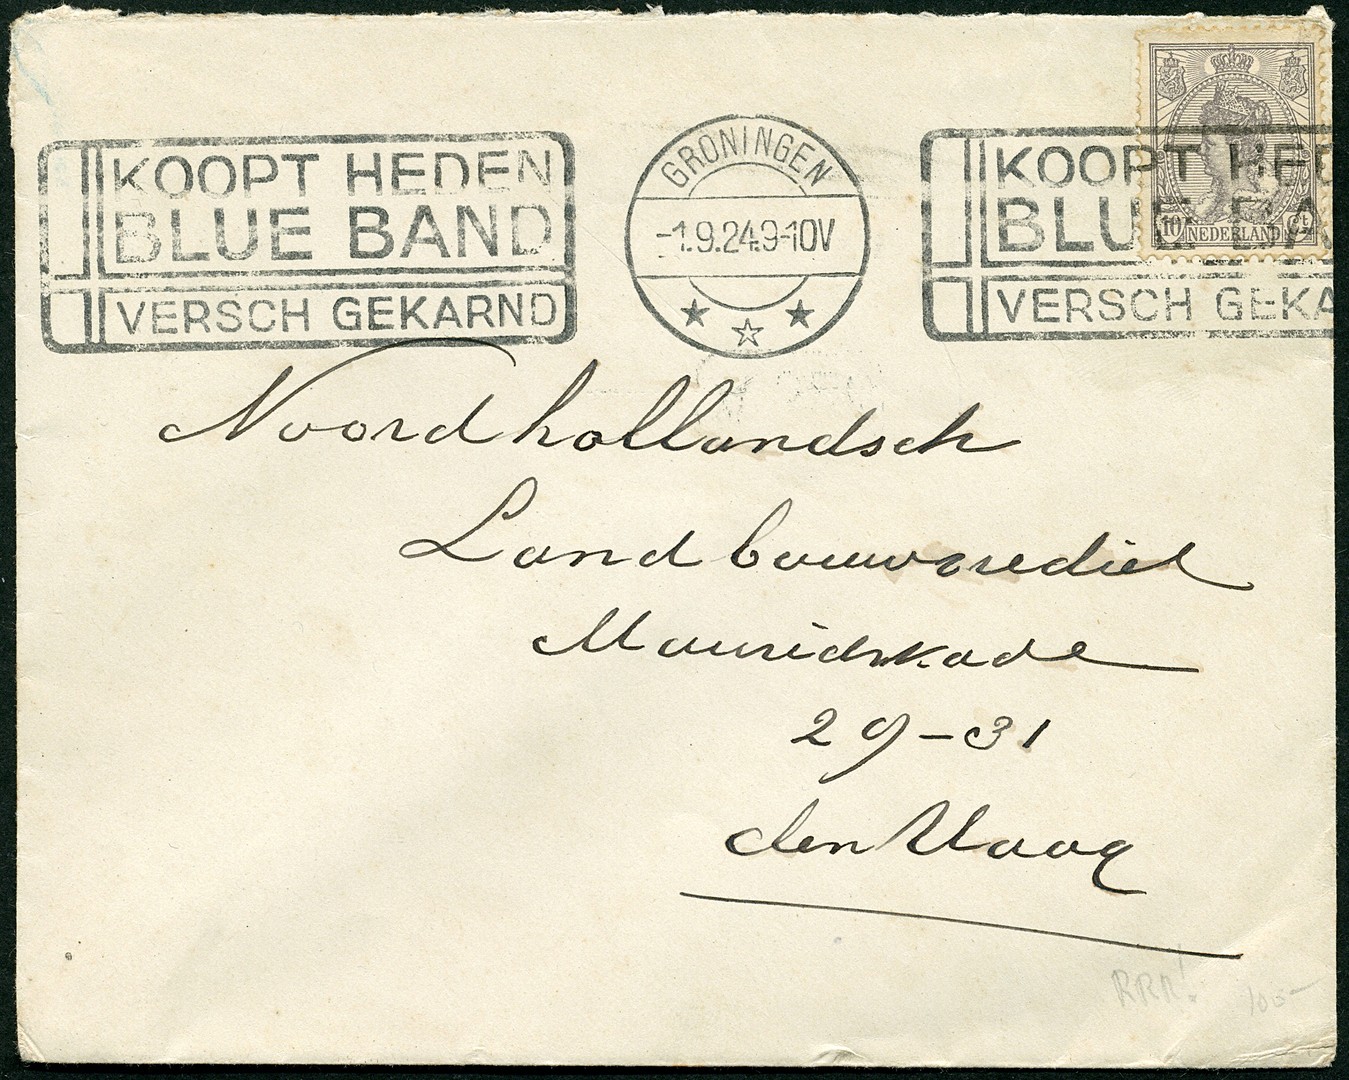 KOOPT HEDEN
BLUE BAND
VERSCH GEKARND
GRONINGEN
-1.9.24.9-10V
KOOPT HED
BLUE BA
VERSCH GEKA
10 Ct
NEDERLAND
Noordhollandsch
Landbouwcrediet
Mauridskade
29-31
den Haag
RRR!
100-